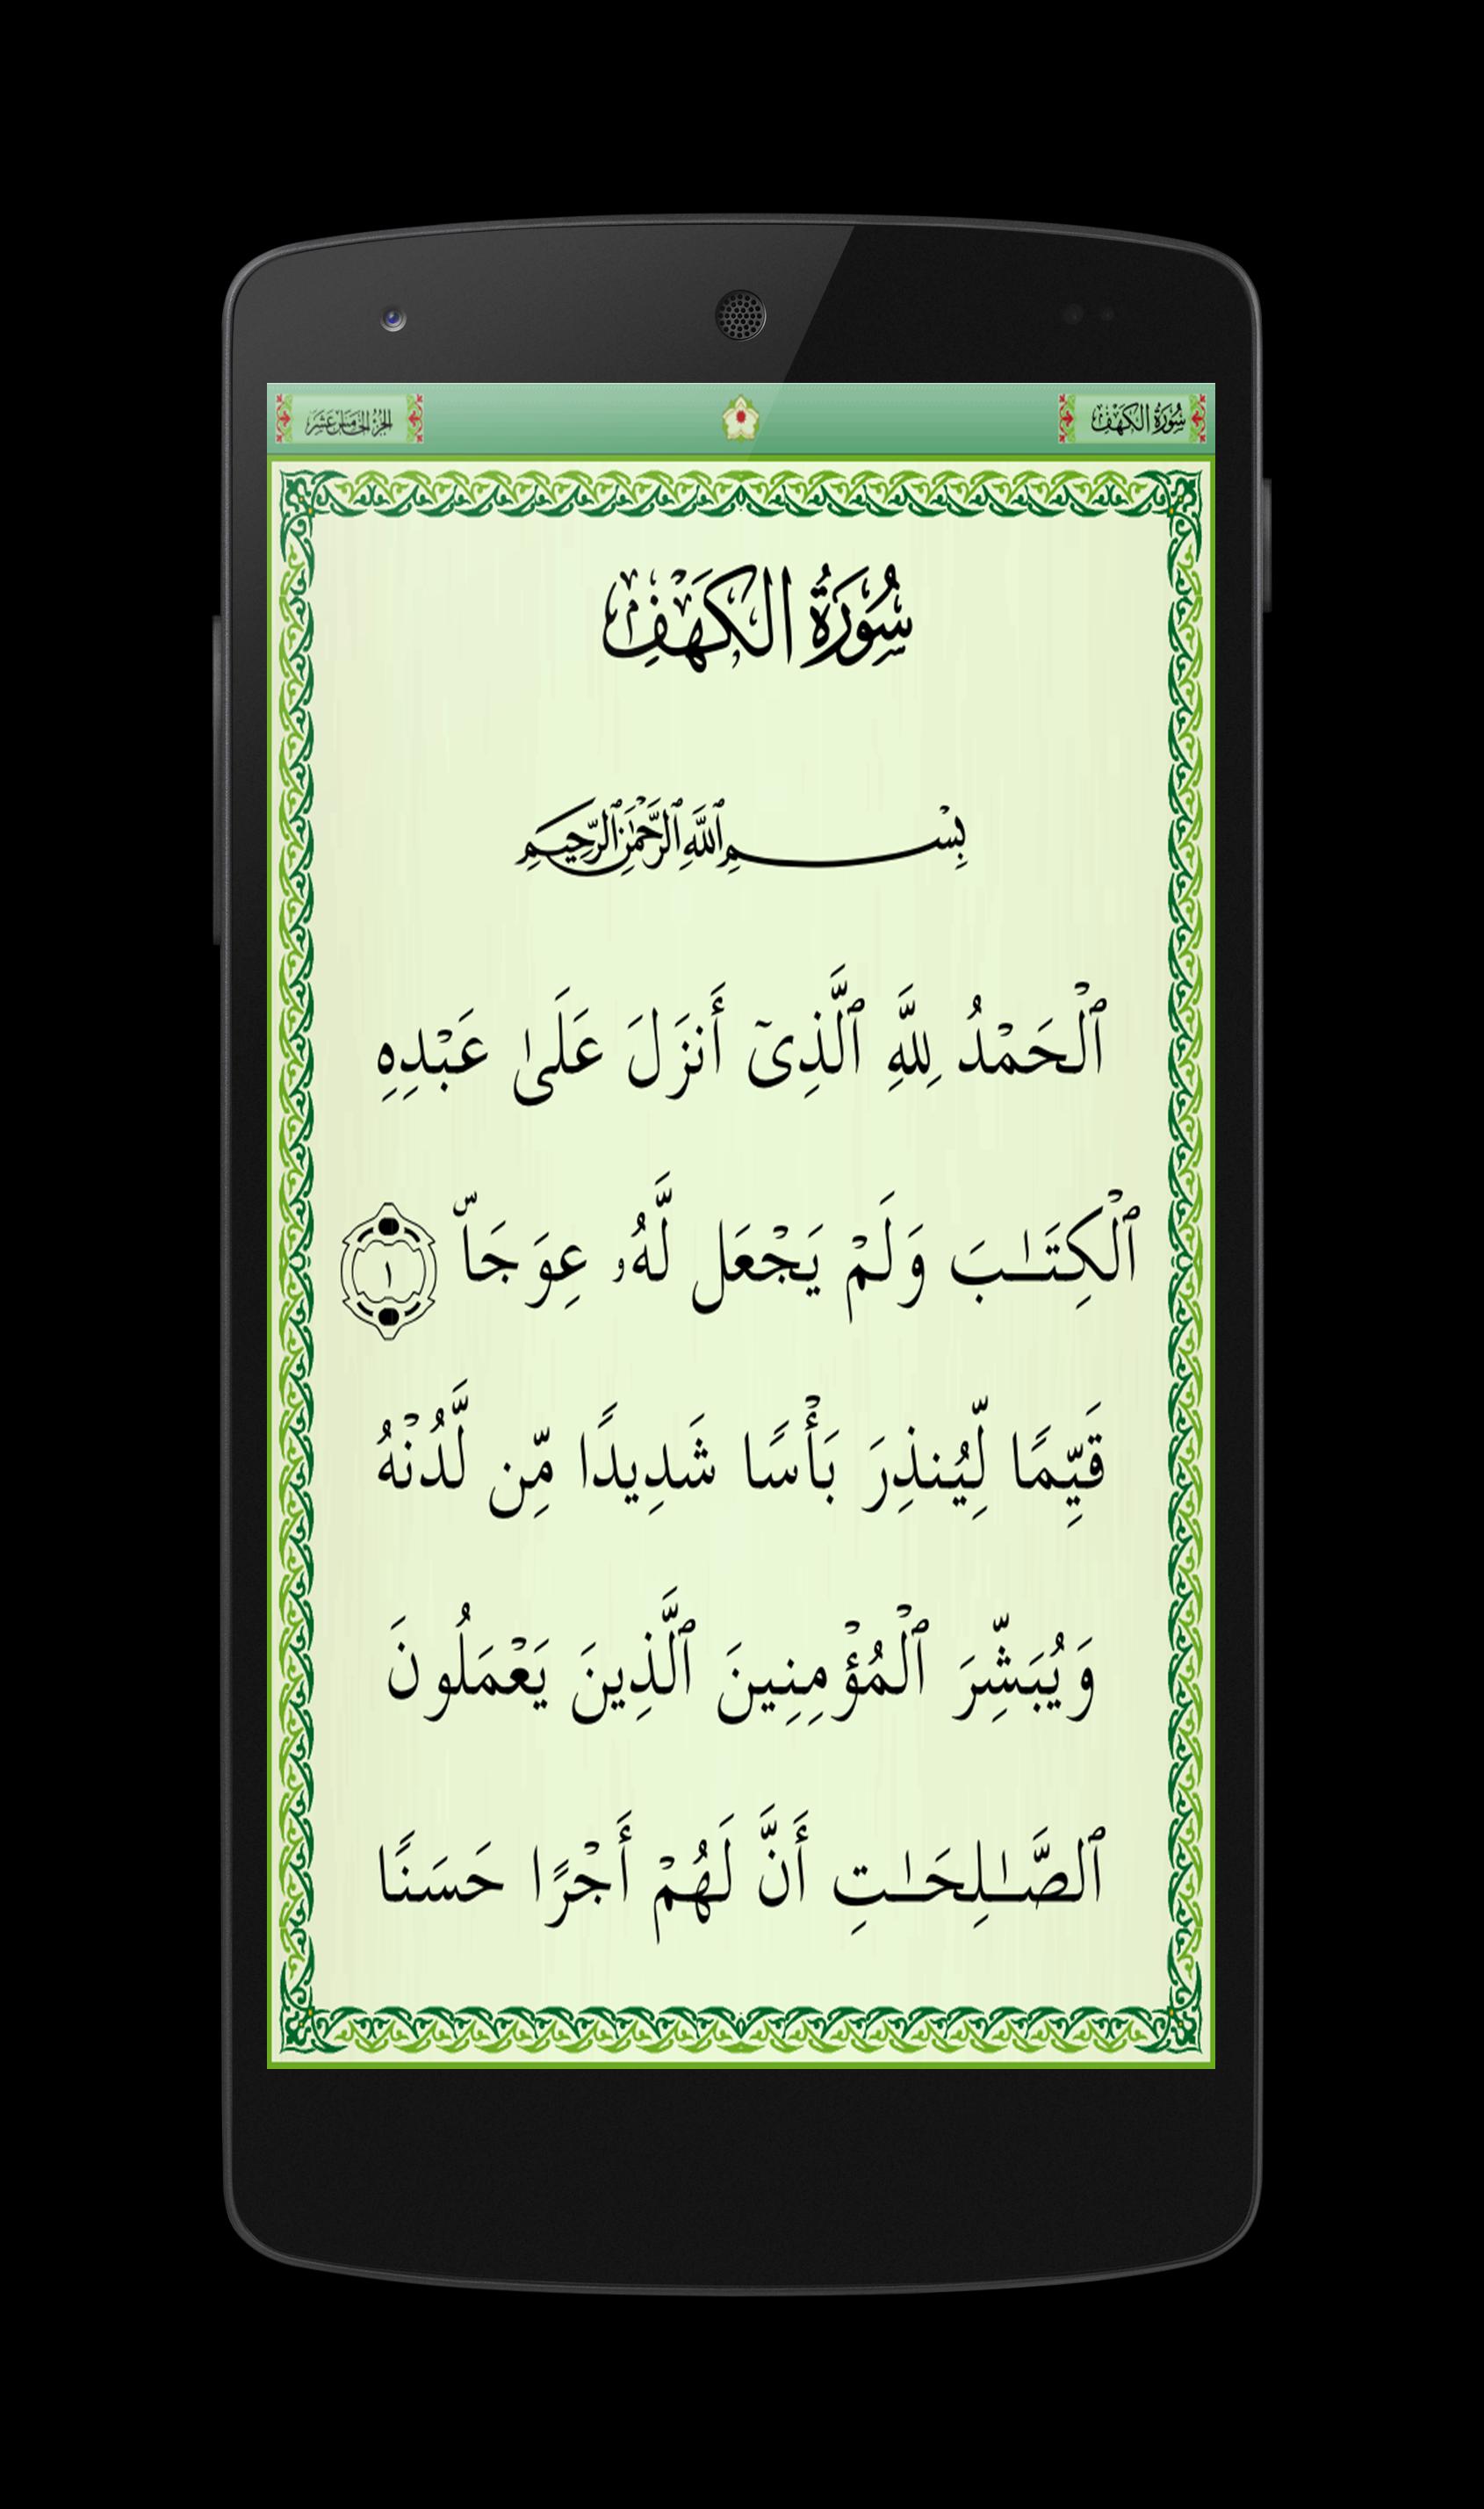 سُورَةُ الكَهْفِ
الجُزْءُ الخَامِسَ عَشَرَ
سُورَةُ الكَهْفِ
بِسْمِ ٱللَّهِ ٱلرَّحْمَٰنِ ٱلرَّحِيمِ
ٱلْحَمْدُ لِلَّهِ ٱلَّذِىٓ أَنزَلَ عَلَىٰ عَبْدِهِ
ٱلْكِتَـٰبَ وَلَمْ يَجْعَل لَّهُۥ عِوَجَاۜ ١
قَيِّمًا لِّيُنذِرَ بَأْسًا شَدِيدًا مِّن لَّدُنْهُ
وَيُبَشِّرَ ٱلْمُؤْمِنِينَ ٱلَّذِينَ يَعْمَلُونَ
ٱلصَّـٰلِحَـٰتِ أَنَّ لَهُمْ أَجْرًا حَسَنًا